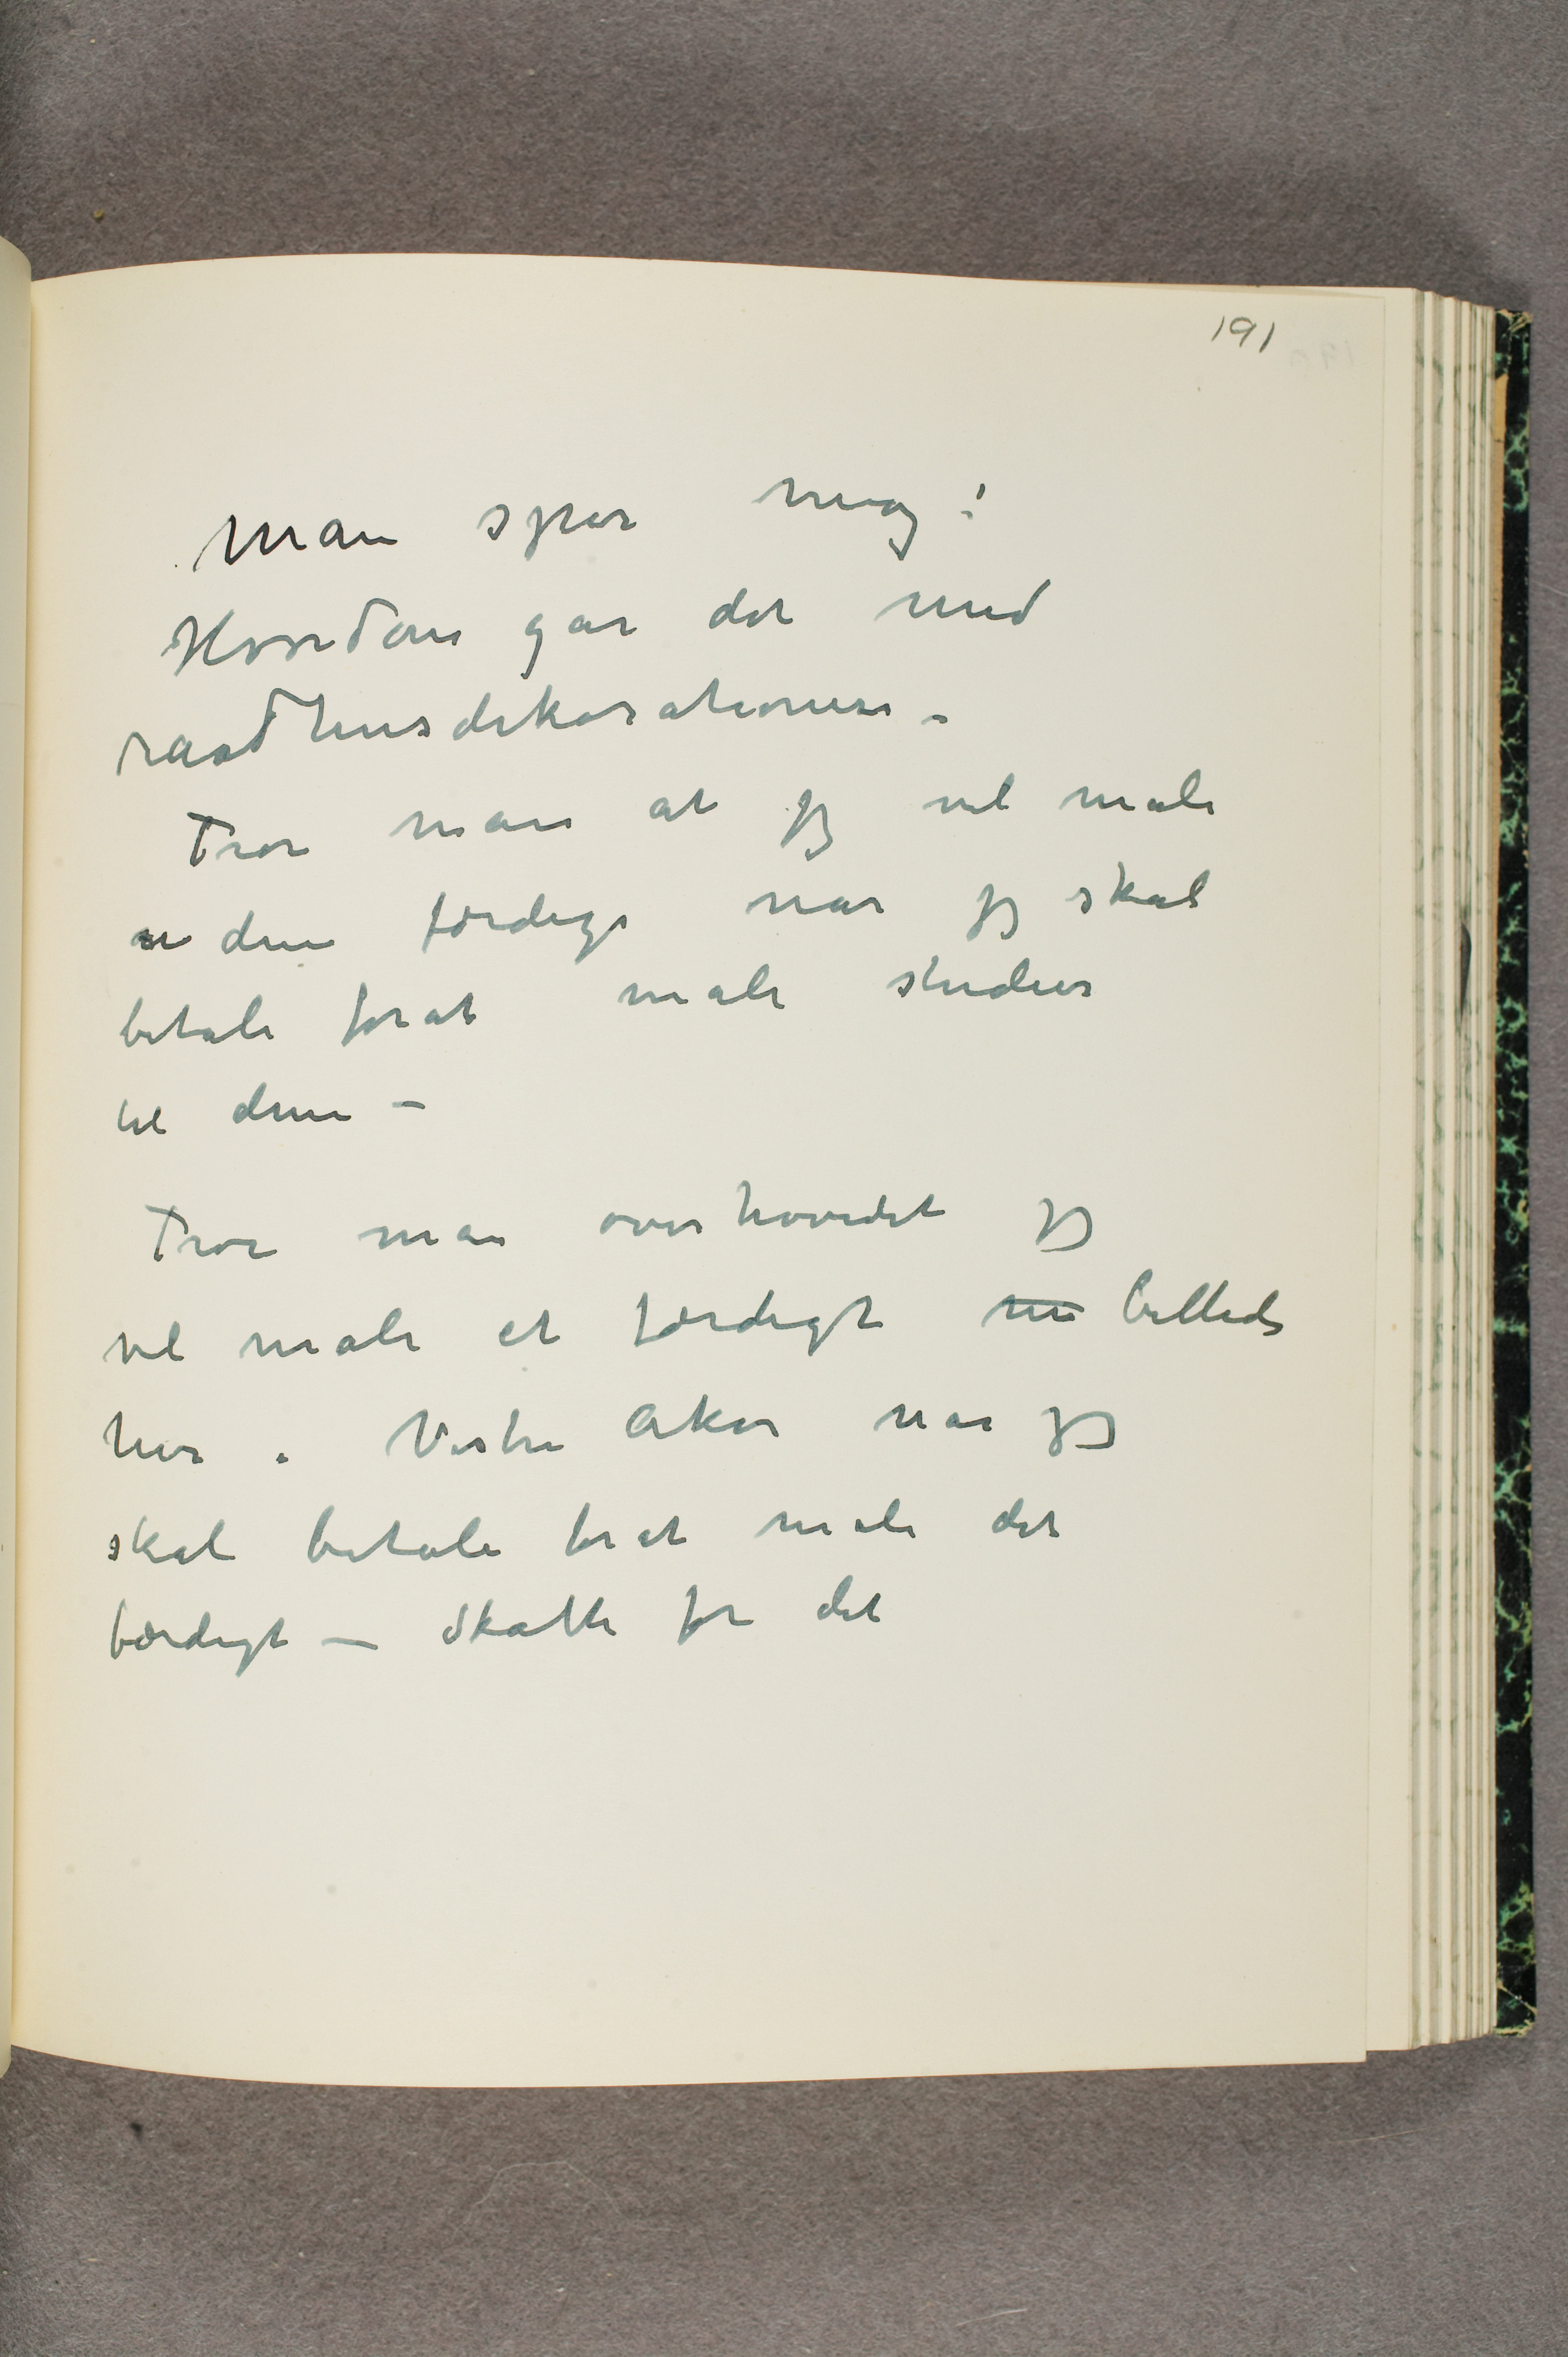 191
Man spør meg:
Hvordan går det med
raadhusdekorationen.
Tror man at jeg vil male
dem færdige når jeg skal
betale forat male studier
til dem –
Tror man overhovedet jeg
vil male et færdigt billede
her i Vestre Aker når jeg
skal betale forat male det
færdigt — Skatte for det